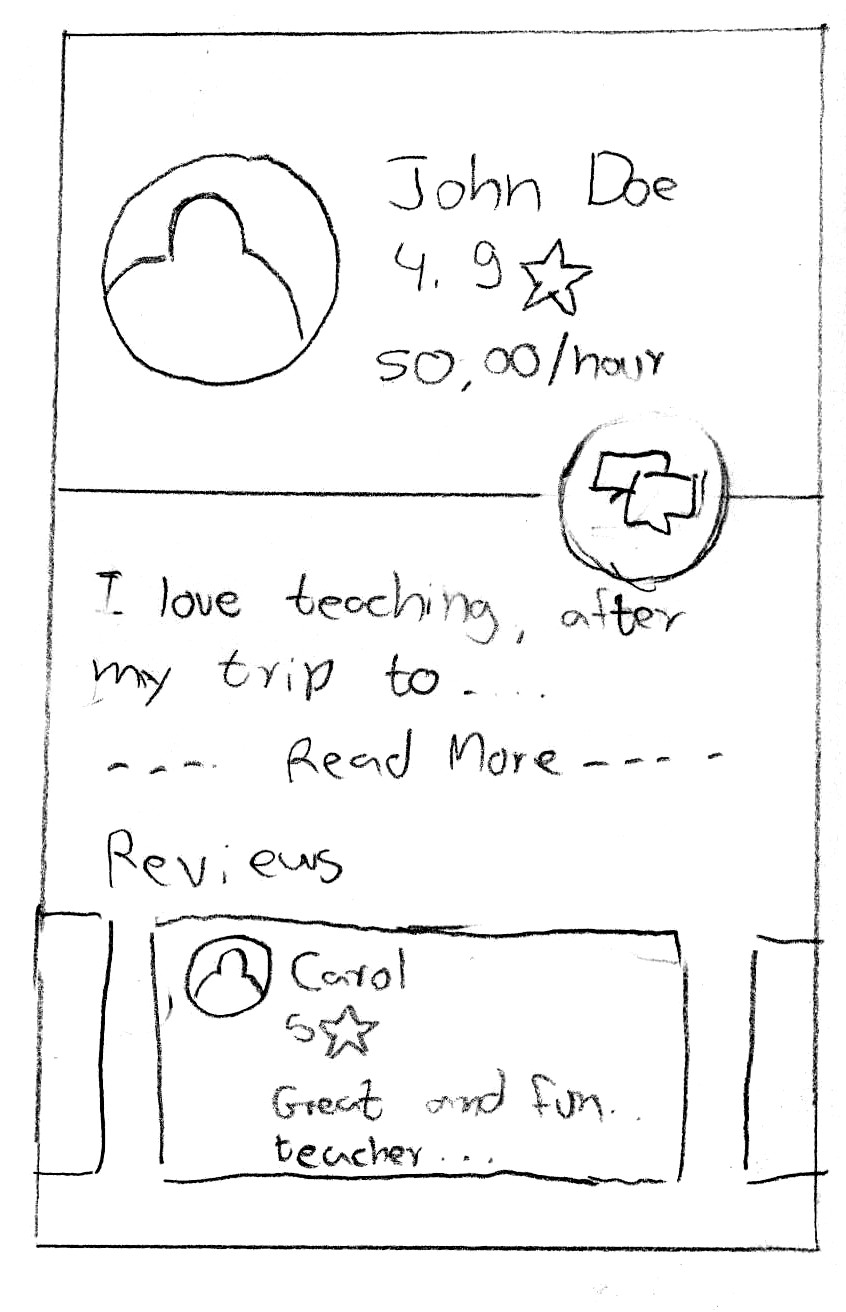 John Doe
4.9
50,00/hour
I love teaching, after
my trip to ....
---- Read More ----
Reviews
Carol
5
Great and fun..
teacher...